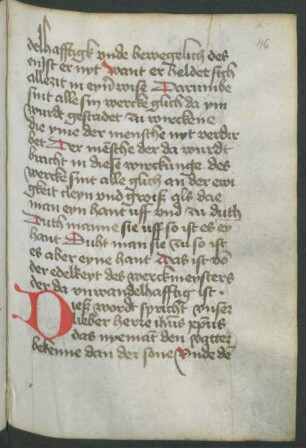 46
delhafftigk vnde bewegelich des
enist er nyt want er heldet sich
allezit in eyner wise Darumbe
sint alle sin wercke glich da ym
wurdt gestadet zu wirckene
die yme der mensche nyt verdir
bet Der mensche der da wurdt
bracht in diese wirckunge des
wercke sint alle glich an der ewi
gkeit cleyn vnd groiß als dae
man eyn hant uff vnd zu duth
Duth manne sie uff so ist es ey
hant Duht man sie zu so ist
es aber eyne hant Das ist vo
der edelkeyt des werckmeysters
der da vnwandelhafftig ist
Dieß wordt spricht vnser
lieber herre ihus xpus
das nyemāt den vatter
bekenne dan der sone Vnde dē